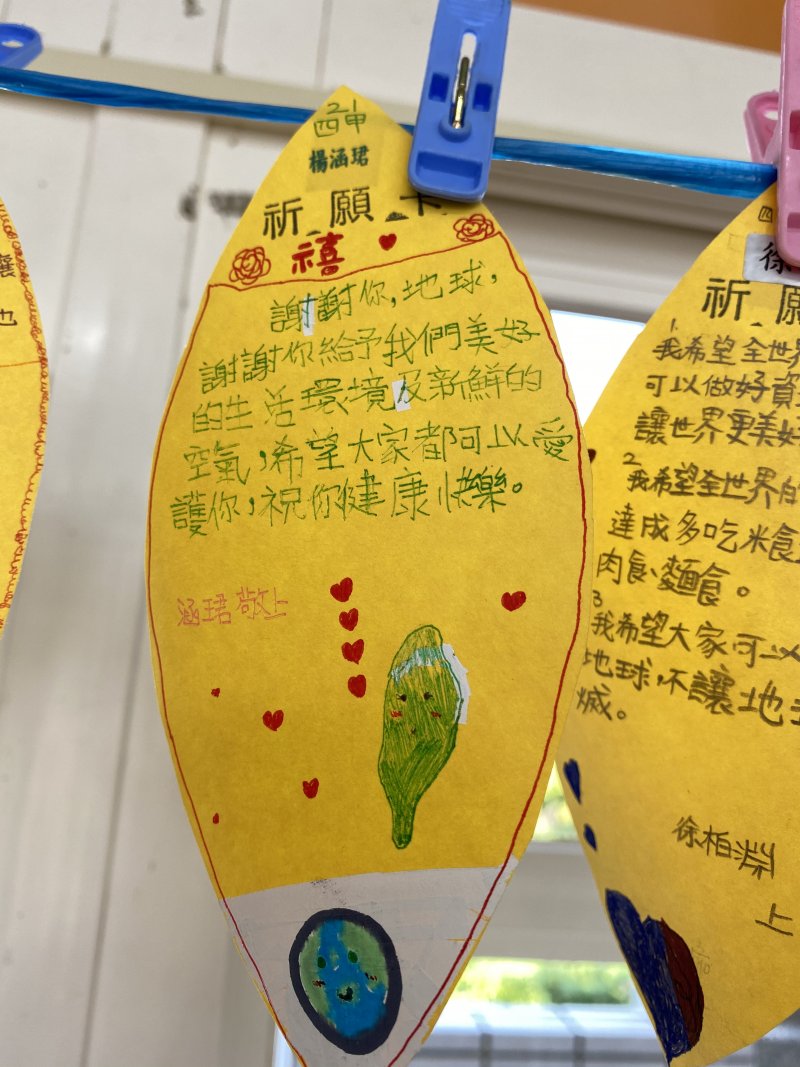 21
四申
楊涵珺
祈願卡
禧
謝謝你,地球,
謝謝你給予我們美好
的生活環境及新鮮的
空氣,希望大家都可以愛
護你,祝你健康快樂。
涵珺敬上
也
四
徐
祈願
1
我希望全世界
可以做好資
讓世界更美好
2
我希望全世界的
達成多吃米食
肉食、麵食。
3
我希望大家可以
地球,不讓地
滅。
徐柏淵
上